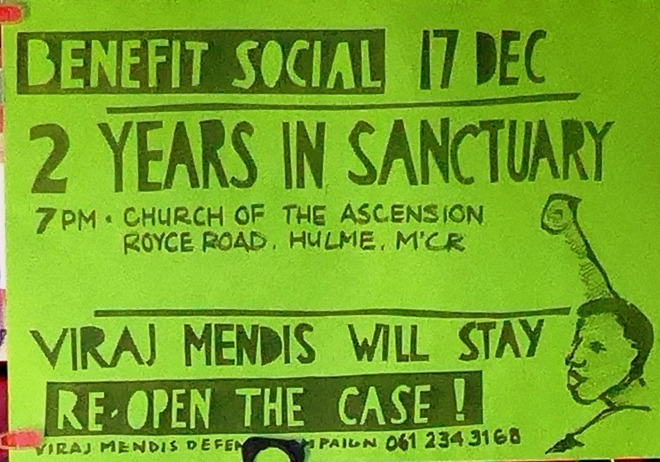 BENEFIT SOCIAL 17 DEC
2 YEARS IN SANCTUARY
7PM · CHURCH OF THE ASCENSION
ROYCE ROAD. HULME. M'CR
VIRAJ MENDIS WILL STAY
RE-OPEN THE CASE!
VIRAJ MENDIS 061 234 3168